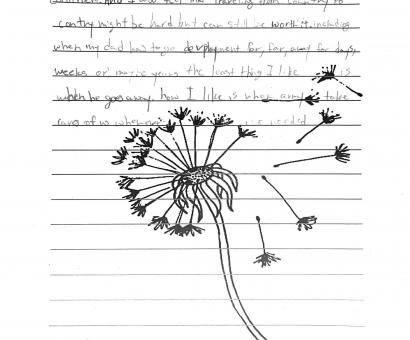 And I also feel that traveling from country to
contry might be hard but can still be worth it. including
when my dad has to go devployment for, far, away for days,
weeks or maybe years the least thing I like is
when he goes away. how I like is when army take
care of us whenever needed